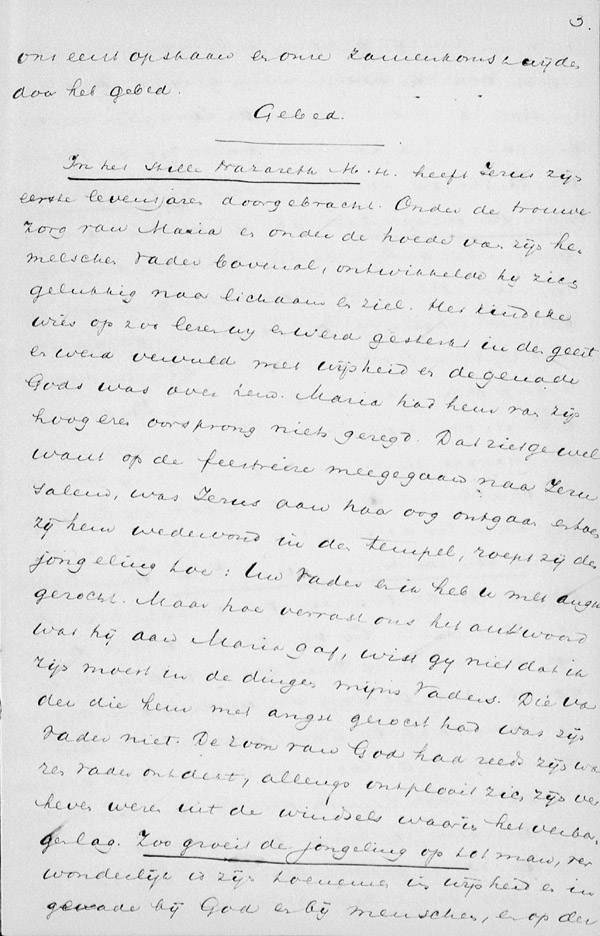 3.
ons eerst opstaan en onze zamenkomst wijden
door het gebed.
Gebed.
In het stille Nazareth M. H. heeft Jezus zijn
eerste levensjaren doorgebracht. Onder de trouwe
zorg van Maria en onder de hoede van zijn he
melschen vader bovenal, ontwikkelde hij zich
gelukkig naar lichaam en ziel. Het kindeke
wies op zoo lezen wij en werd gesterkt in den geest
en werd vervuld met wijsheid en de genade
Gods was over hem. Maria had hem van zijn
hoogeren oorsprong niets gezegd. Dat ziet ge wel
want op de feestreize meegegaan naar Jeru
salem, was Jezus aan haar oog ontgaan en toen
zij hem wedervond in den tempel, roept zij den
jongeling toe: Uw vader en ik heb u met angst
gezocht. Maar hoe verrast ons het antwoord
wat hij aan Maria gaf, wist gij niet dat ik
zijn moest in de dingen mijns Vaders. Die va
der die hem met angst gezocht had was zijn
vader niet. De zoon van God had reeds zijn wa
ren vader ontdekt, allengs ontplooit zich zijn ver
heven wezen uit de windsels waarin het verbor
gen lag. Zoo groeit de jongeling op tot man, ver
wonderlijk is zijn toenemen in wijsheid en in
genade bij God en bij menschen, en op den